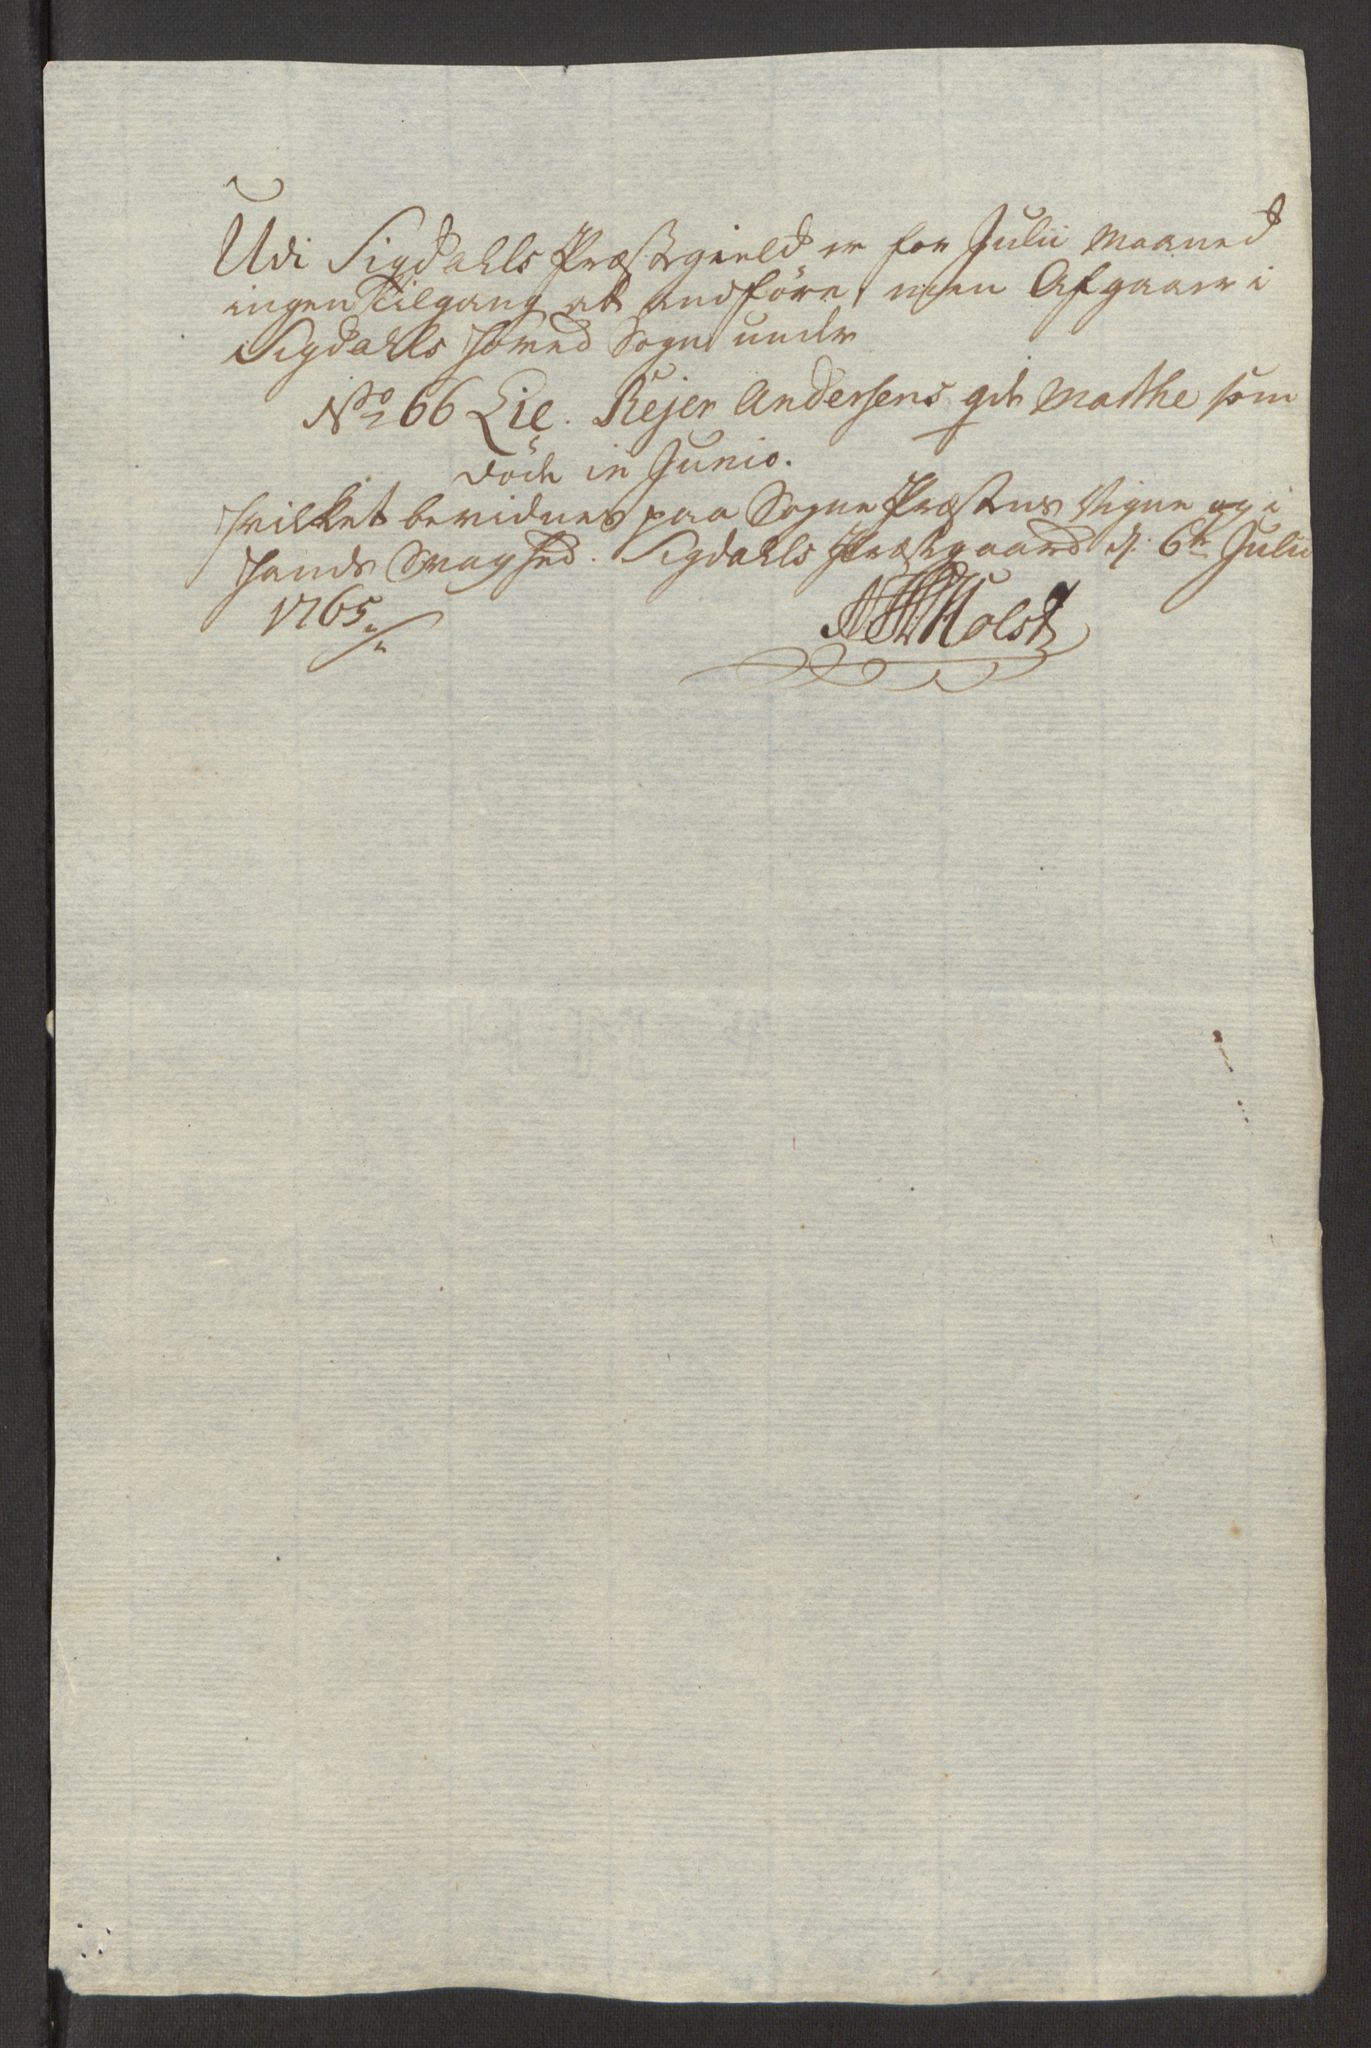 Udi Sigdahls Præstegield er for Julii Maaned
ingen Tilgang at andföre, men Afgaaer i
Sigdahls Hoved Sogn under
No 66 Lie. Rejer Andersens gde Mathe som
döde in Junio.
Hvilket bevidnes paa Sogne Præstens Vegne og i
Hands Svaghed. Sigdahls Præstegaard d. 6te Julii
1765.
Holst